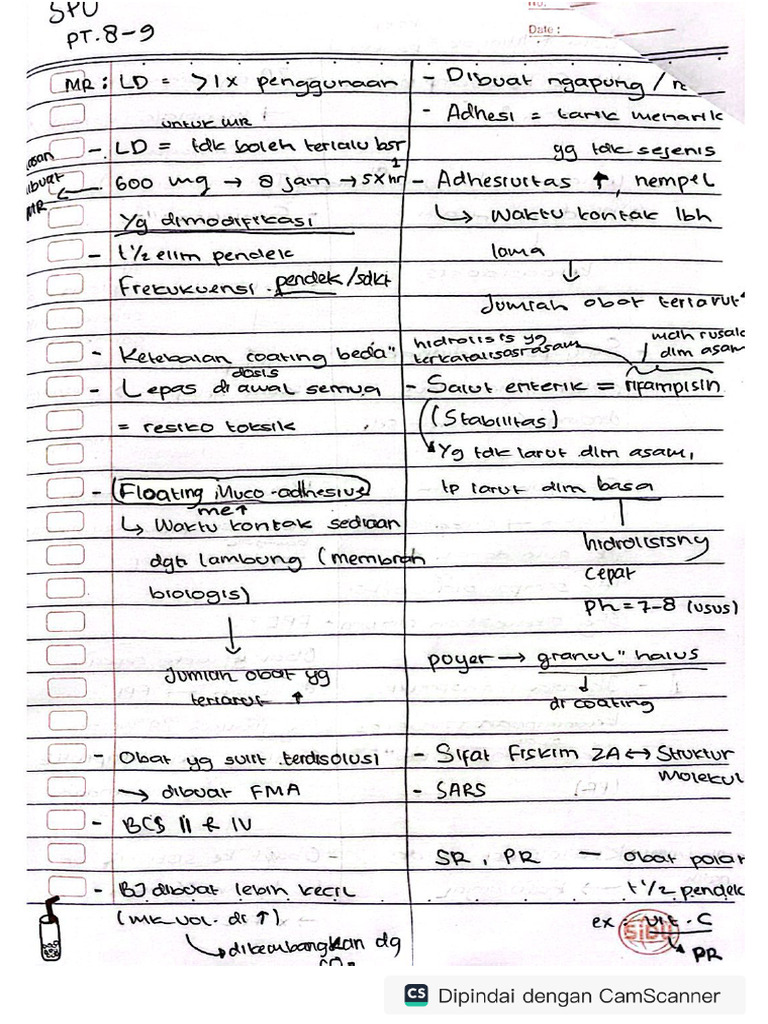 SPU
PT. 8-9
No.
Date :
MR : LD = >1x penggunaan
untuk MR
- LD = tdk boleh terlalu bsr
dibuat
MR
600 mg → 8 jam → 5x
Yg dimodifikasi
- t 1/2 elim pendek
Frekukuensi pendek/sdkt
- Ketebalan coating beda"
dosis
- Lepas di awal semua
= resiko toksik
- Floating, Muco-adhesive
me↑
↳ Waktu kontak sediaan
dgn lambung (membran
biologis)
↓
Jumlah obat yg
terlarut ↑
- Obat yg sulit terdisolusi
→ dibuat FMA
- BCS II & IV
- BJ dibuat lebih kecil
(mk vol. di ↑)
↳ dikembangkan dg
- Dibuat ngapung /
- Adhesi = tarik menarik
yg tdk sejenis
- Adhesivitas ↑, nempel
↳ Waktu kontak lbh
lama
↓
Jumlah obat terlarut
hidrolisis yg
terkatalisasi asam
mdh rusak
dlm asam
- Salut enterik = rifampisin
(Stabilitas)
Yg tdk larut dlm asam,
tp larut dlm basa
hidrolisisny
cepat
pH = 7-8 (usus)
poyer → granul" halus
↓
di coating
- Sifat Fiskim ZA ↔ Struktur
Molekul
- SARS
SR, PR — obat polar
t 1/2 pendek
ex : vit. C
↳ PR
SiDU
CS Dipindai dengan CamScanner